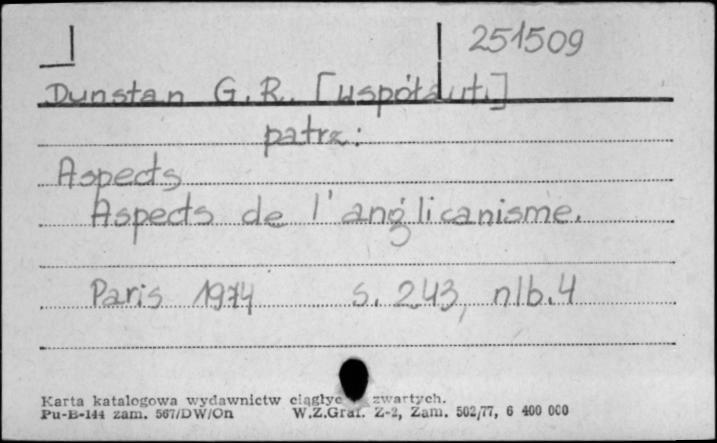 251509
Dunstan G.R. [współaut.]
patrz:
Aspects
Aspects de l'anglicanisme.
Paris 1974 s. 243, nlb. 4
Karta katalogowa wydawnictw ciągłyc zwartych.
Pu-B-144 zam. 567/DW/On W.Z.Graf. Z-2, Zam. 502/77, 6 400 000